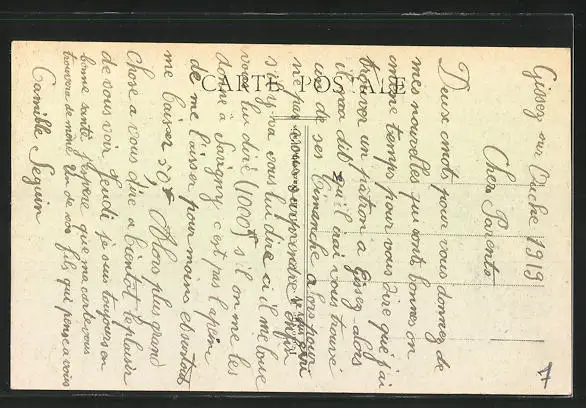 CARTE POSTALE
Gissey sur Ouche 1919
Chers Parents
Deux mots pour vous donner de
mes nouvelles qui sont bonnes en
même temps pour vous dire que j'ai
trouver un patron a Gissey alors
il m'a dit qu'il irai vous trouvé
un de ses Dimanche alors pour
ne pas vous surprendre
s'il y va vous lui dire ci il me loue
vous lui diré (1000f) s'il on me les
donne à Savigny c'est pas la peine
de me laisser pour moins et surtout
me laiser 50f Alors plus grand
chose a vous dire a bientot le plaisir
de vous voir Jeudi je suis toujours en
bonne santé j'espere que ma carte vous
trouvera de même Un de vos fils qui pense a vous
Camille Seguin